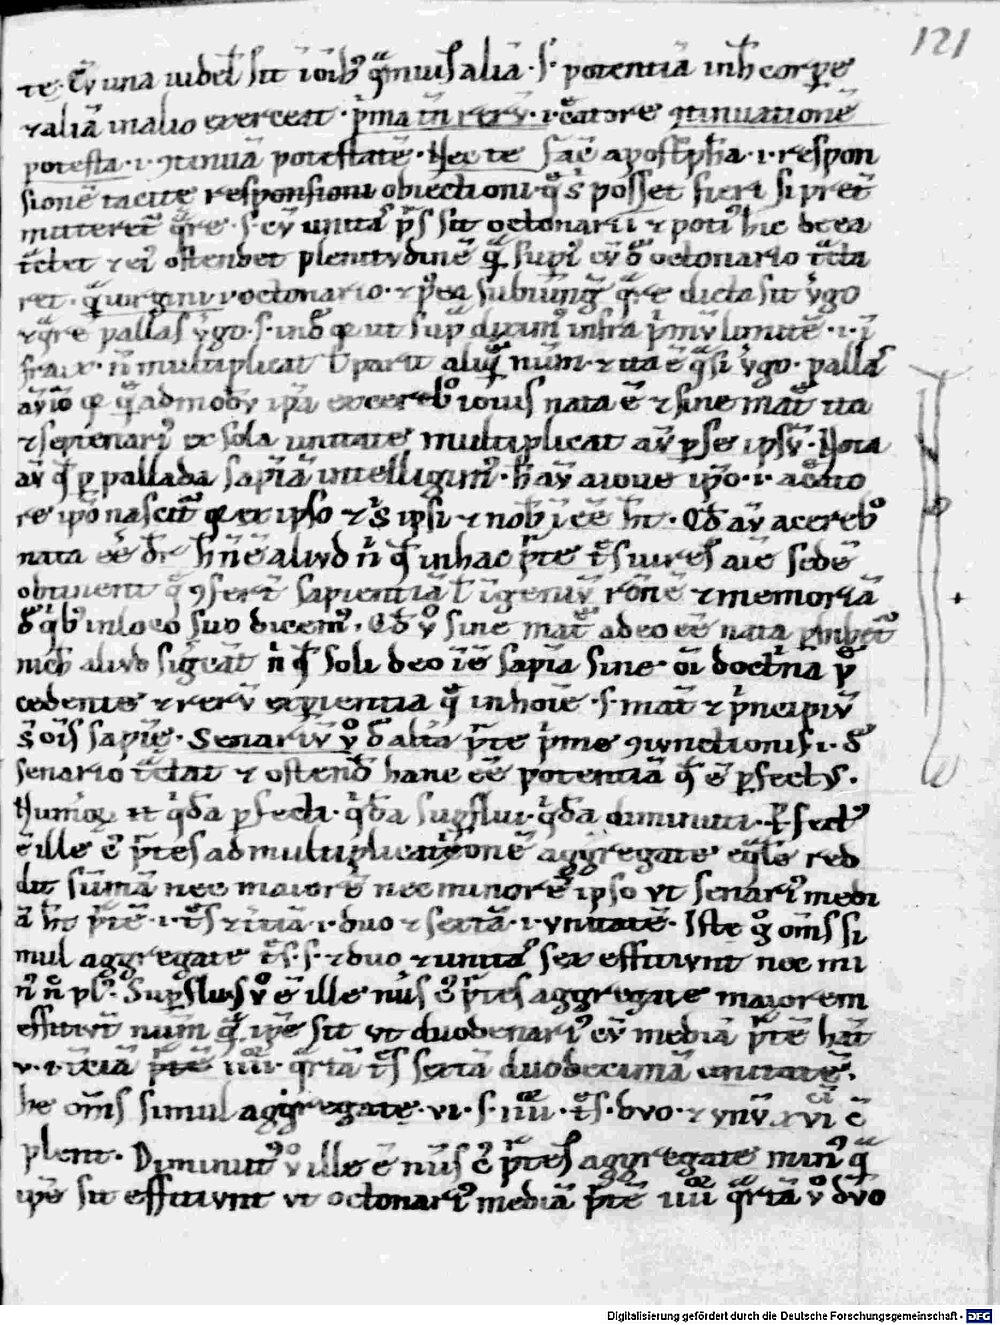 121
te. Cū una uidel; sit ī oib; quāuis aliā. s. potentiā in h̄ corpore
⁊ aliā in alio exerceat. p̄ma tn̄ rerū. i. c̄atore ꝯtinuatione
potesta. i. ꝯtinuā potestatē. Nec te sac̄ apostrph̄a. i. respon
sionē tacite responsioni obiectioni. q̄ s̄ posset fieri si pret̄
mitteret̄ q̄re. s. cū unitas p̄s sit octonarii ⁊ poti᷒ hic de ea
t̄ctet ⁊ ei᷒ ostendet plenitudinē q̄ sup̄i᷒ cū de octonario t̄cta
ret. q̄ uirgini octonario. ⁊ p̄ea subiūnḡ q̄re dicta sit ỽgo
⁊ q̄re pallas ỽgo. s. in infra p̄mū limitē. i. ī
fra x. n̄ multiplicat ł parit aliquē nūm. ⁊ ita ē q̄si ỽgo. pallas
aūiō ꝙ q̄admodū ip̄a ex cerebro iouis nata ē ⁊ sine mat̄ ita
⁊ septenari᷒ ex sola unitate multiplicat aū ꝑ se ipsū. Nota
aū q̄ ꝑ pallada sap̄iā intelligim᷒. h̄ aū a ioue ip̄o. i. a c̄ato
re ip̄o nascit̄ ꝙ ex ipso ⁊ s̄ ipsi ⁊ nob̄ īēē h̄t. Qd̄ aū a cerebro
nata ēē dr̄ h̄ n̄ ē aliud n̄ q̄ in hac p̄te t̄s uires aīe sedē
obtinent q̄ ꝯfert̄ sapientiā ł īgeniū rōnē ⁊ memoriā
de q̄b; in loco suo dicem᷒. Qd̄ ỽ sine mat̄ adeo ēē nata phibet̄
nich̄ aliud sig̅eat̄ n̄ q̄ soli deo īē sap̄ia sine oī doct̄na p̄
cedente ⁊ rerū expientia q̄ in hoīe. s. mat̄ ⁊ p̄ncipiū
s̄ oīs sap̄ię. Senariū ỽ de alta p̄te p̄me ꝯiunctionis. i. de
senario t̄ctat ⁊ ostend̄ hanc ēē potentiā q̄ ē ꝑfectus.
Numeroꝝ ēt q̄da ꝑfecti. q̄da supflui. q̄da diminuti. ꝑfect᷒
ē ille c᷒ p̄tes ad multiplicationē aggregate eq̄lē red
dit sūmā nec maiorē nec minorē ipso ut senari᷒ medi
ā h̄t p̄tē. i. t̄s ⁊ t̄tiā. i. duo ⁊ sextā. i. unitatē. Iste g̊ oms si
mul aggregate t̄s. s. ⁊ duo ⁊ unitas sex efficiunt nec mi
n᷒ n̄ pl᷒. Supflus ỽ ē ille nūs c᷒ p̄tes aggregate maiorem
efficiūt nūm q̄ ip̄e sit ut duodenari᷒ cū mediā p̄tē habet
vi. t̄ciā p̄tē iiii. q̄rtā t̄s sextā duodecimā unitatē.
he oms simul aggregate. vi. s. iiii. t̄s. duo. ⁊ unū xvi ē
plent. Diminut᷒ ỽ ille ē nūs c᷒ p̄tes aggregate min᷒ q̄
ip̄e sit efficiunt ut octonari᷒ mediā p̄tē iiii q̄rtā ỽ duo
Digitalisierung gefördert durch die Deutsche Forschungsgemeinschaft - DFG